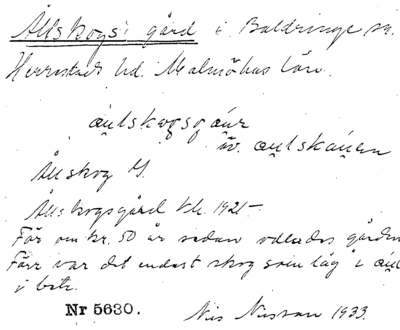 Ållskogs gård i Baldringe sn.
Herrestads hd. Malmöhus län.
aulskogsgaur
äv. aulskauen
Ållskog H.
Ållskogsgård tk. 1921 -
För om kr. 50 år sedan odlades gården
Förr var det endast skog som låg i
i bete.
Nr 5630. Nils Nilsson 1933.